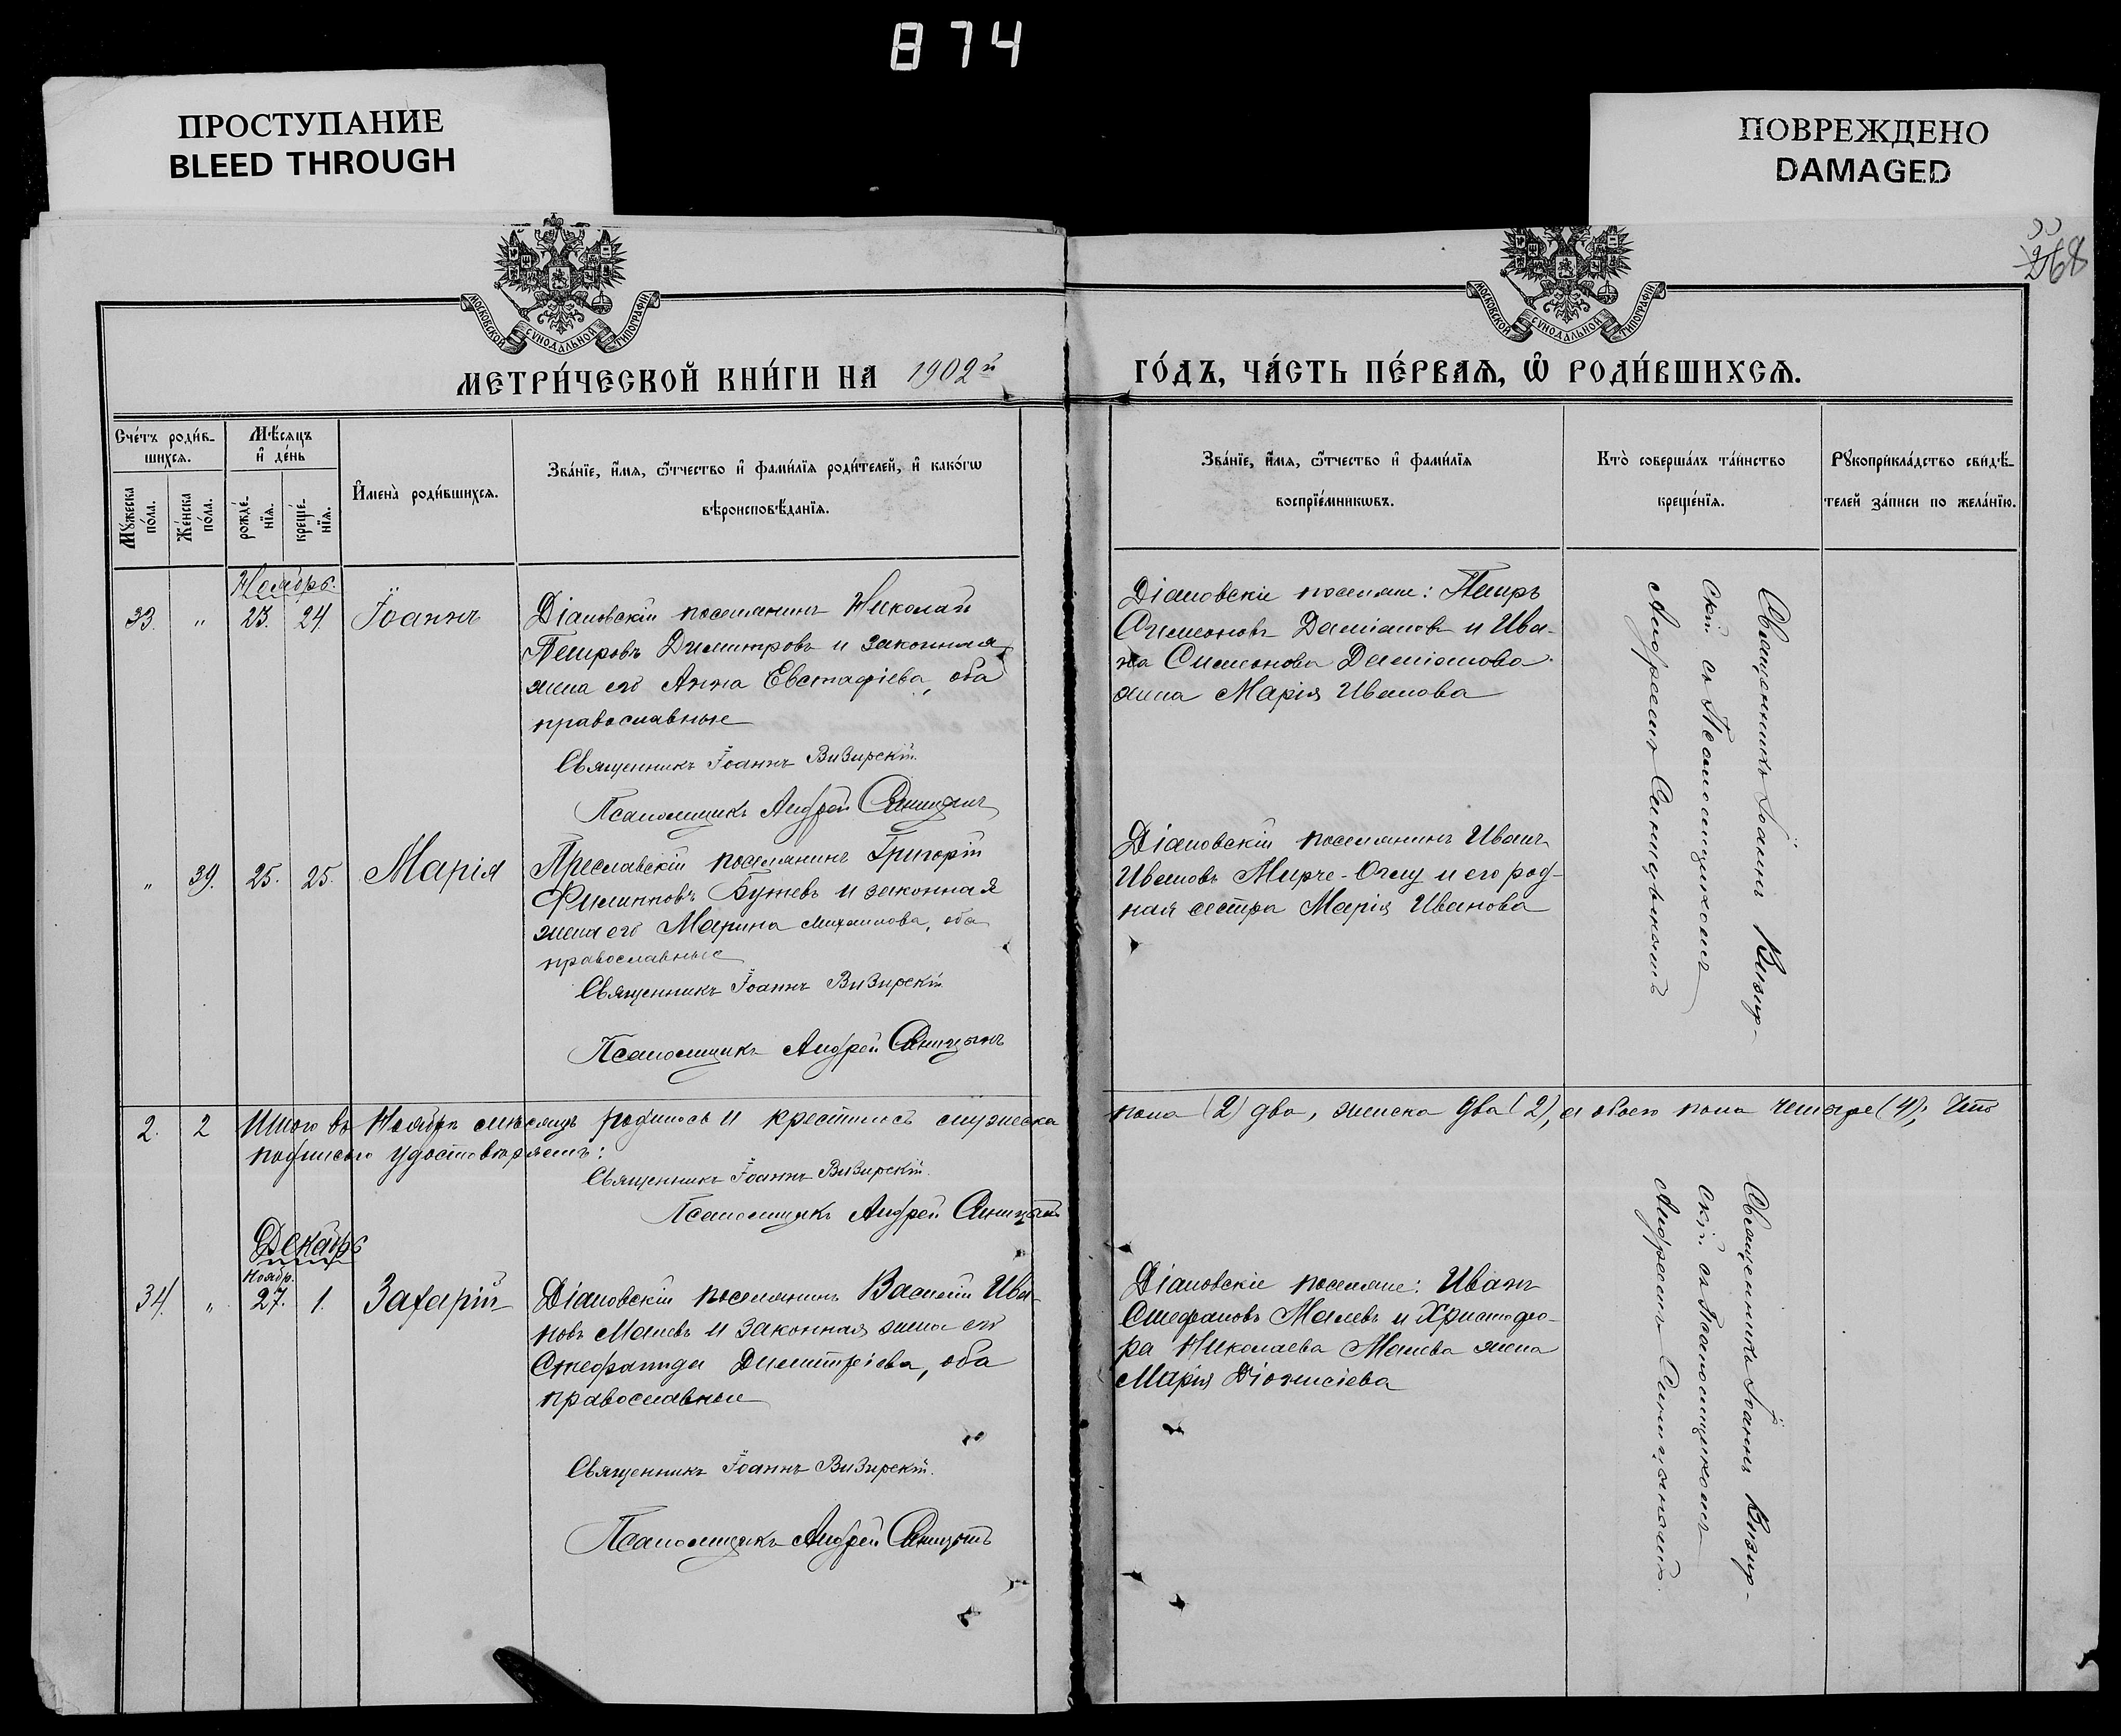 874
ПРОСТУПАНИЕ
BLEED THROUGH
ПОВРЕЖДЕНО
DAMAGED
268
МОСКОВСКОЙ СѴНОДАЛЬНОЙ ТИПОГРАФІИ
МОСКОВСКОЙ СѴНОДАЛЬНОЙ ТИПОГРАФІИ
МЕТРИ́ЧЕСКОЙ КНИ́ГИ НА 1902й
ГО́ДЪ, ЧА́СТЬ ПЕ́РВАѦ, Ѡ РОДИ́ВШИХСѦ.
Сче́тъ роди́в-
шихсѧ.
Мѣ́сѧцъ
и҆ де́нь
Мꙋ́жеска
по́ла.
Же́нска
по́ла.
рожде́-
нїѧ.
креще́-
нїѧ.
И҆мена̀ роди́вшихсѧ.
Зва́нїе, и҆́мѧ, ѻ҆́тчество и҆ фами́лїѧ роди́телей, и҆ како́гѡ
вѣроисповѣ́данїѧ.
Зва́нїе, и҆́мѧ, ѻ҆́тчество и҆ фами́лїѧ
воспрїе́мникѡвъ.
Кто̀ соверша́лъ та́инство
креще́нїѧ.
Рꙋкоприкла́дство свидѣ́-
телей за́писи по жела́нїю.
Ноябрь.
33. " 23. 24. Іоаннъ
Діановскій поселянинъ Николай
Петровъ Димитровъ и законная
жена его Анна Евстафіева, оба
православные
Священникъ Іоаннъ Визирскій.
Псаломщикъ Андрей Синицынъ
Діановскіе поселяне: Петръ
Симеоновъ Даміановъ и Ива-
на Симеонова Даміанова
жена Марія Иванова
Священникъ Іоаннъ Визир-
скій съ Псаломщикомъ
Андреемъ Синицынымъ
" 39. 25. 25. Марія
Преславскій поселянинъ Григорій
Филипповъ Бужевъ и законная
жена его Марина Михаилова, оба
православные
Священникъ Іоаннъ Визирскій
Псаломщикъ Андрей Синицынъ
Діановскій поселянинъ Иванъ
Ивановъ Мирче-Оглу и его род-
ная сестра Марія Иванова
2. 2 Итого въ Ноябрѣ мѣсяцѣ родилось и крестилось мужеска
пола (2) два, женска два (2), а обоего пола четыре (4), что
подписью удостовѣряемъ:
Священникъ Іоаннъ Визирскій.
Псаломщикъ Андрей Синицынъ
Декабрь
Ноябр.
34. " 27. 1. Захарій
Діановскій поселянинъ Василій Ива-
новъ Малевъ и законная жена его
Стефанида Димитріева, оба
православные
Священникъ Іоаннъ Визирскій.
Псаломщикъ Андрей Синицынъ
Діановскіе поселяне: Иванъ
Стефановъ Малевъ и Христофо-
ра Николаева Малева жена
Марія Діонисіева
Священникъ Іоаннъ Визир-
скій съ Псаломщикомъ
Андреемъ Синицынымъ.